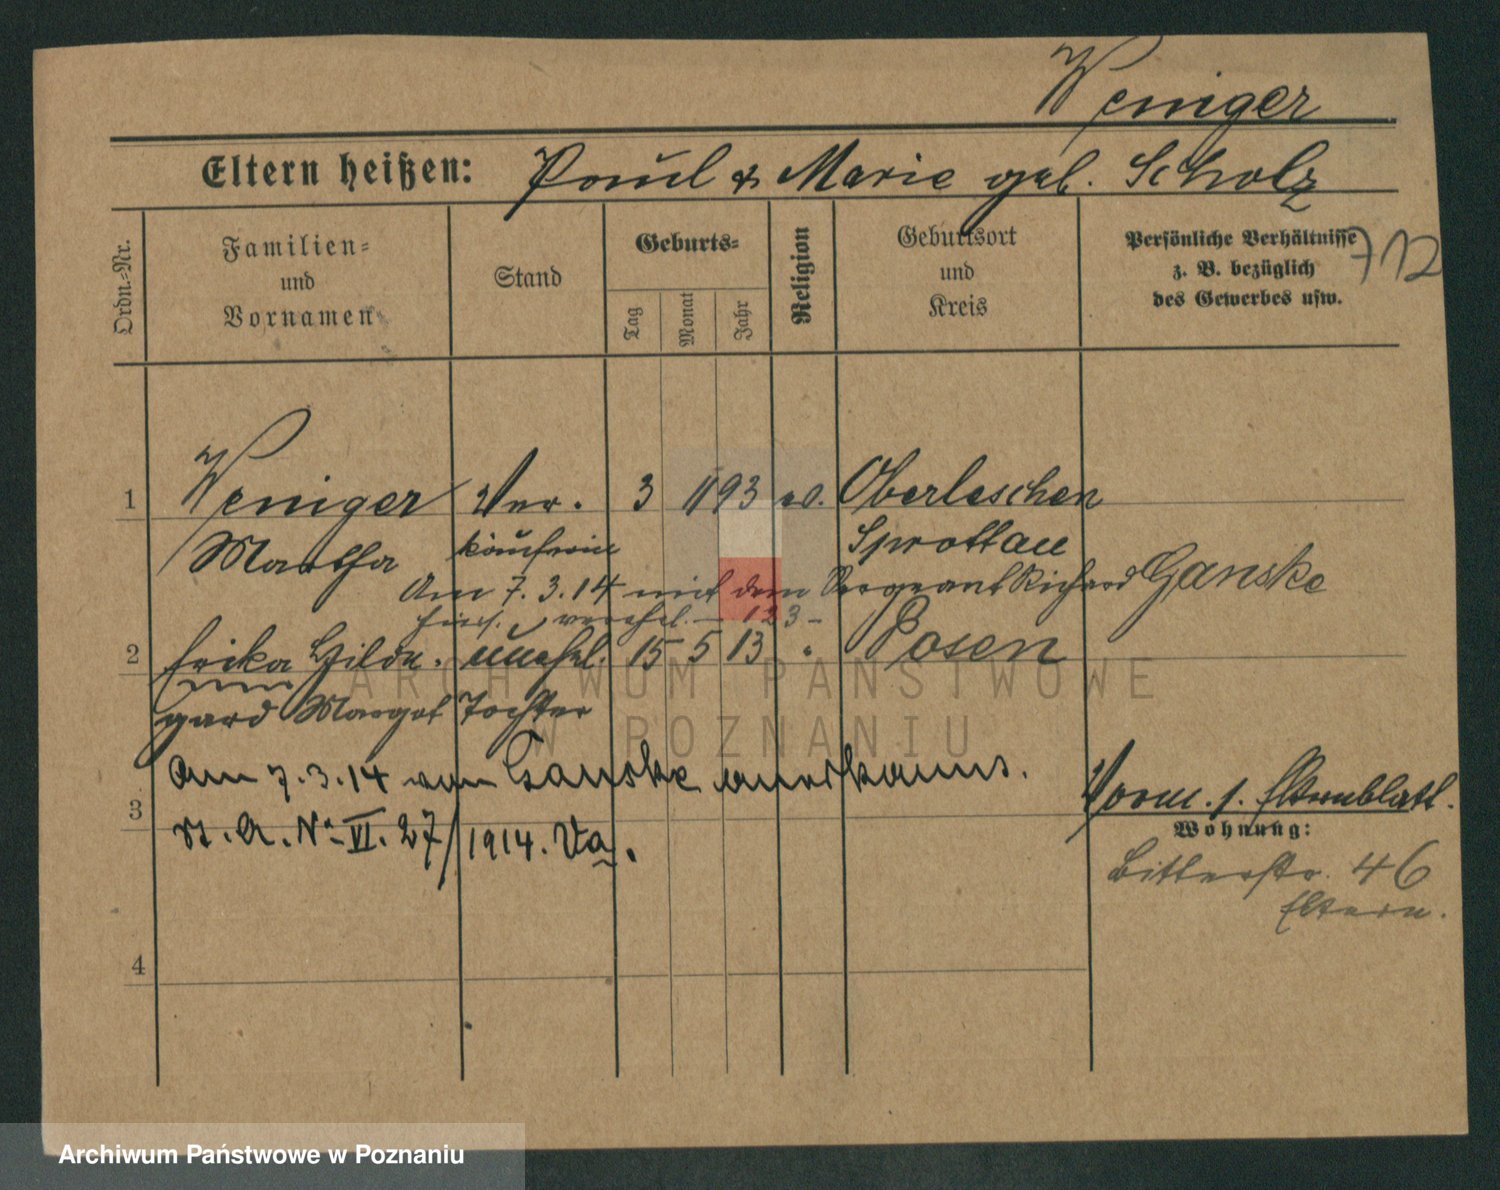 Weniger
Eltern heißen: Paul & Marie geb. Scholz
712
Ordn.=Nr.
Familien=
und
Vornamen
Stand
Geburts=
Tag
Monat
Jahr
Religion
Geburtsort
und
Kreis
Persönliche Verhältnisse
z. B. bezüglich
des Gewerbes usw.
1 Weniger Ver. 3 11 93 ev. Oberleschen
Martha käuferin Sprottau
Am 7.3.14 mit dem Sergeant Richard Ganske
hier. verehel. – 123 –
2 Erika Hilde. unehel. 15 5 13 " Posen
gard Margot Tochter
Am 7.3.14 von Ganske anerkannt.
3 St. A. No VI. 27/1914. Va.
Vorm. s. Elternblatt.
Wohnung:
Bitterstr. 46
Eltern.
4
ARCHIWUM PAŃSTWOWE
W POZNANIU
Archiwum Państwowe w Poznaniu